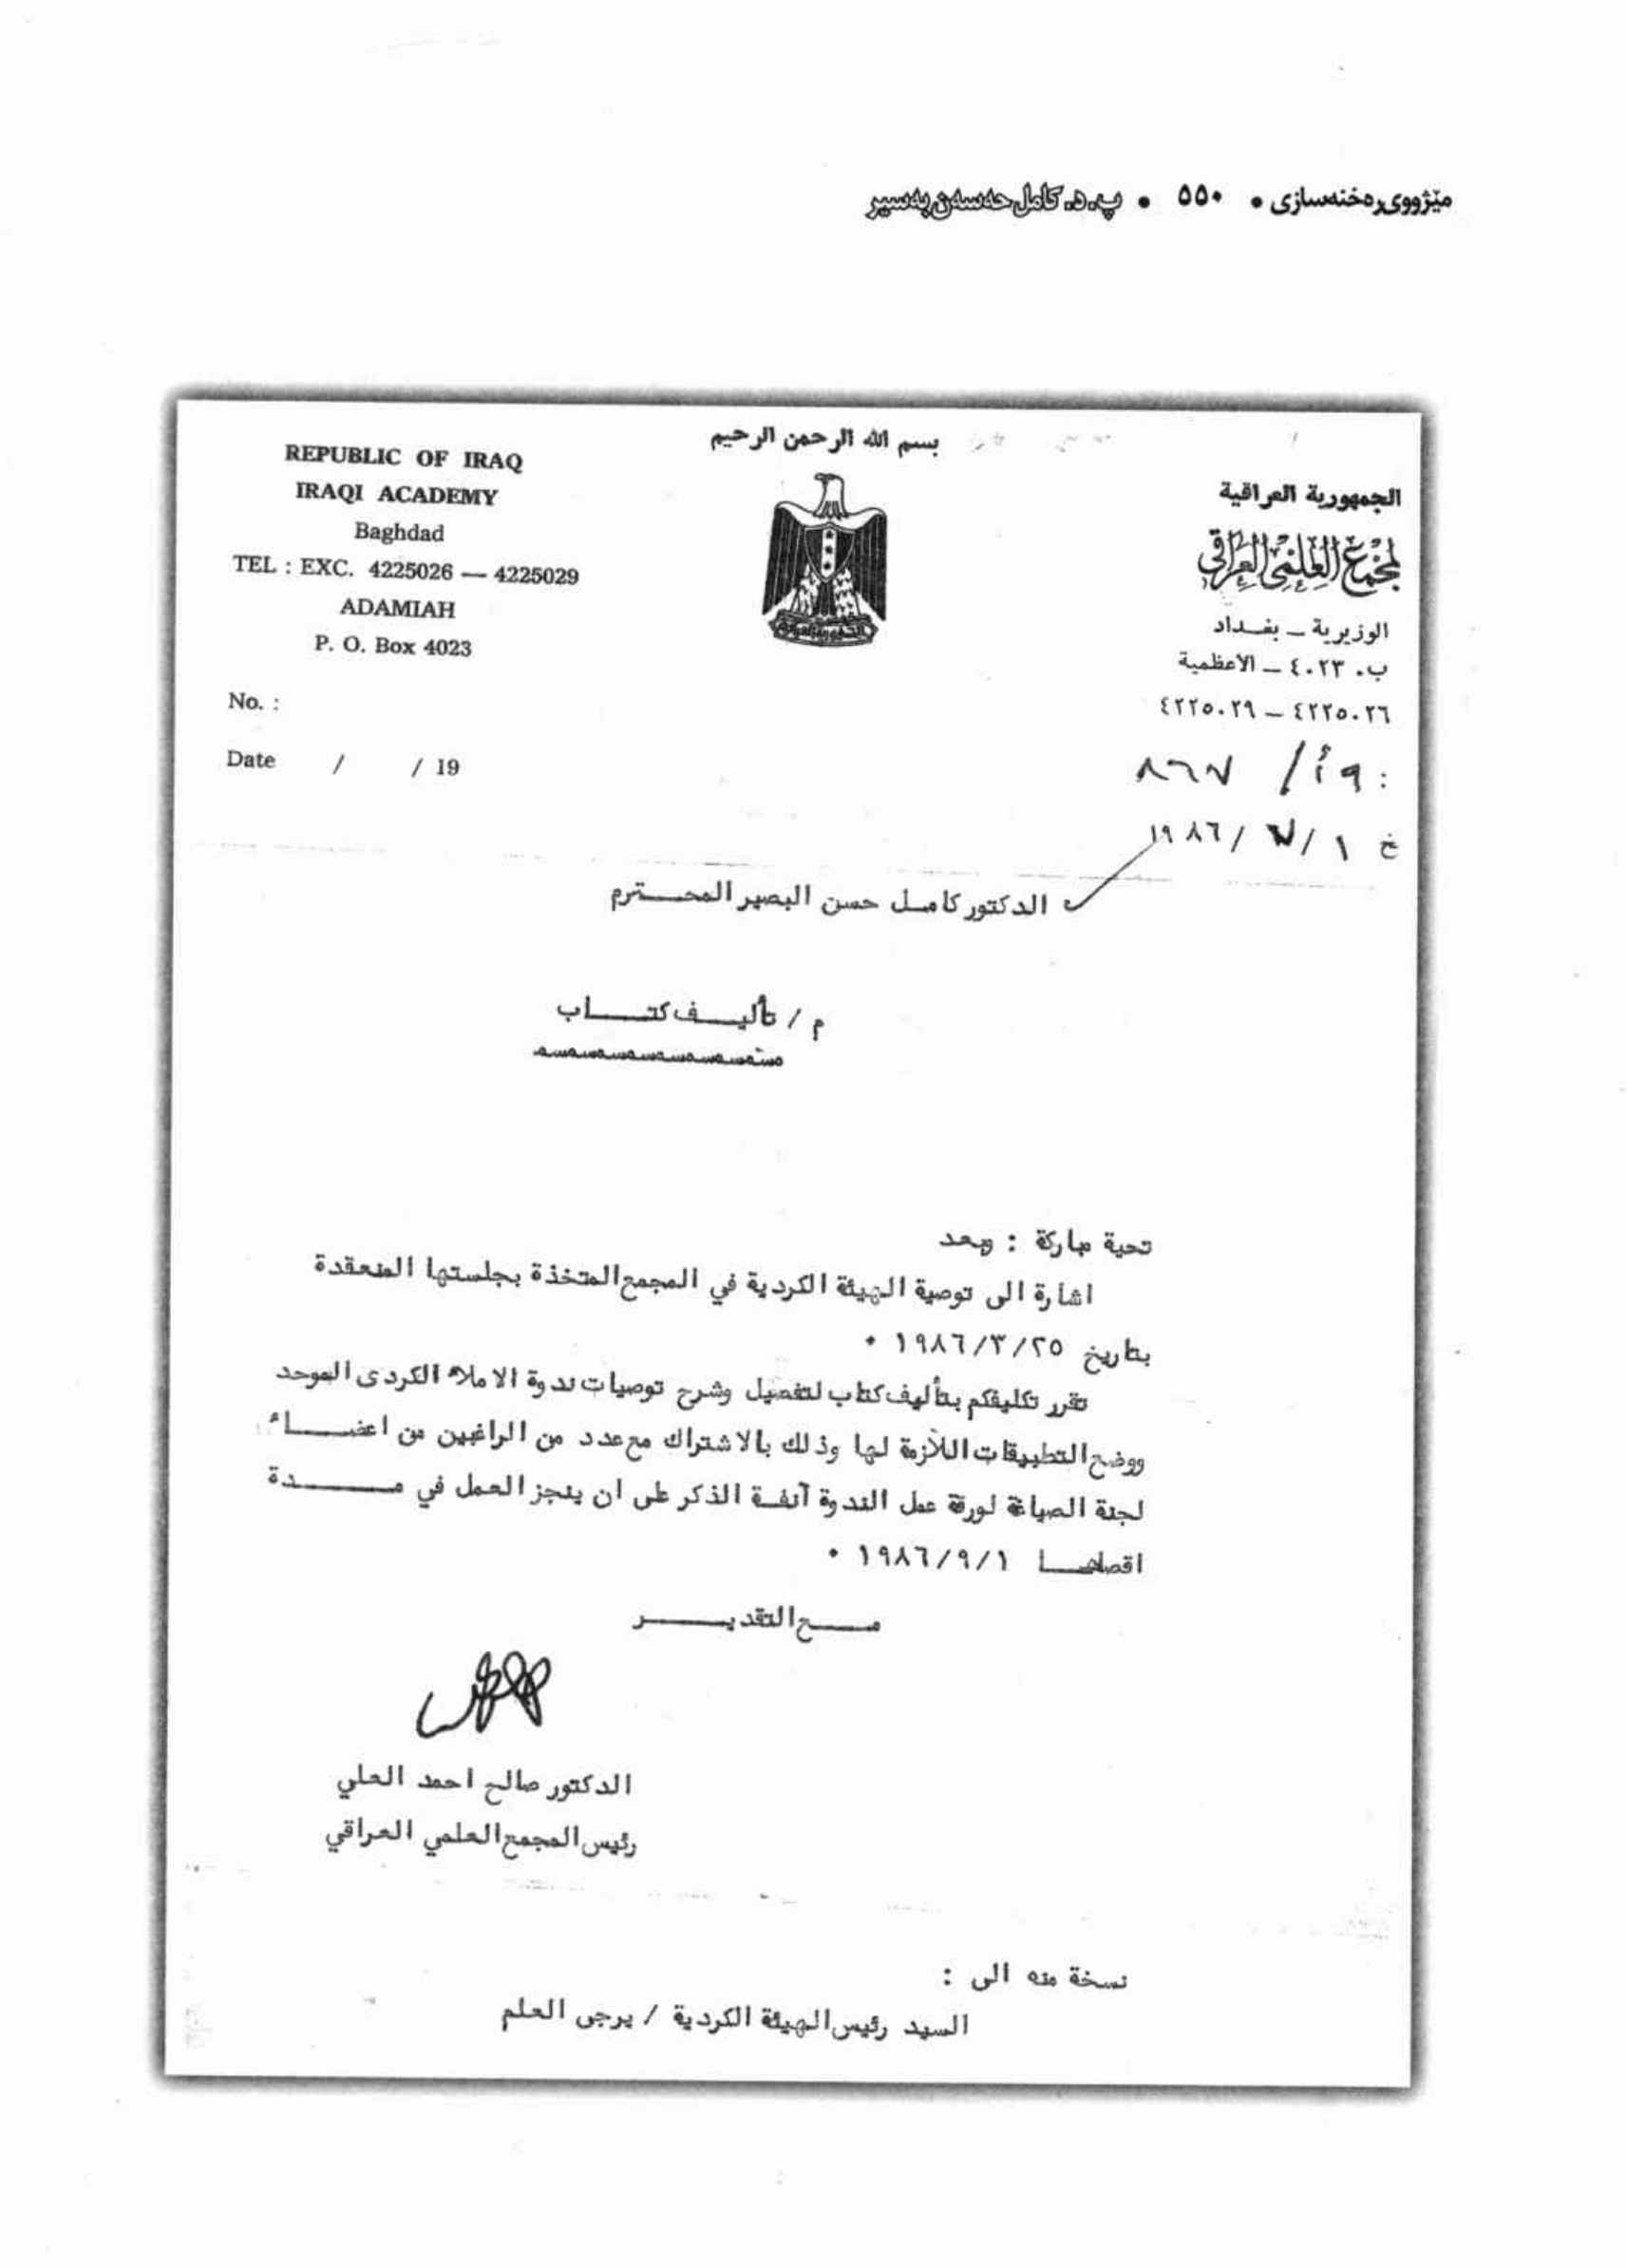 مێژووی ڕەخنەسازی • ٥٥٠ • پ.د.کامل حەسەن بەسیر
بسم الله الرحمن الرحيم
REPUBLIC OF IRAQ
IRAQI ACADEMY
Baghdad
TEL : EXC. 4225026 — 4225029
ADAMIAH
P. O. Box 4023
No. :
Date / / 19
الجمهورية العراقية
لمجمع العلمي العراقي
الوزيرية – بغداد
ب. ٤٠٢٣ – الاعظمية
٤٢٢٥٠٢٦ – ٤٢٢٥٠٢٩
: ٩أ/ ٨٦٧
خ ١ /٧/ ١٩٨٦
الدكتور كامل حسن البصير المحترم
م / تأليف كتاب
تحية مباركة : وبعد
اشارة الى توصية الهيئة الكردية في المجمع المتخذة بجلستها المنعقدة
بتاريخ ١٩٨٦/٣/٢٥ ٠
تقرر تكليفكم بتأليف كتاب لتفصيل وشرح توصيات ندوة الاملاء الكردى الموحد
ووضع التطبيقات اللازمة لها وذلك بالاشتراك مع عدد من الراغبين من اعضاء
لجنة الصياغة لورقة عمل الندوة آنفة الذكر على ان ينجز العمل في مدة
اقصاها ١٩٨٦/٩/١ ٠
مع التقدير
الدكتور صالح احمد العلي
رئيس المجمع العلمي العراقي
نسخة منه الى :
السيد رئيس الهيئة الكردية / يرجى العلم